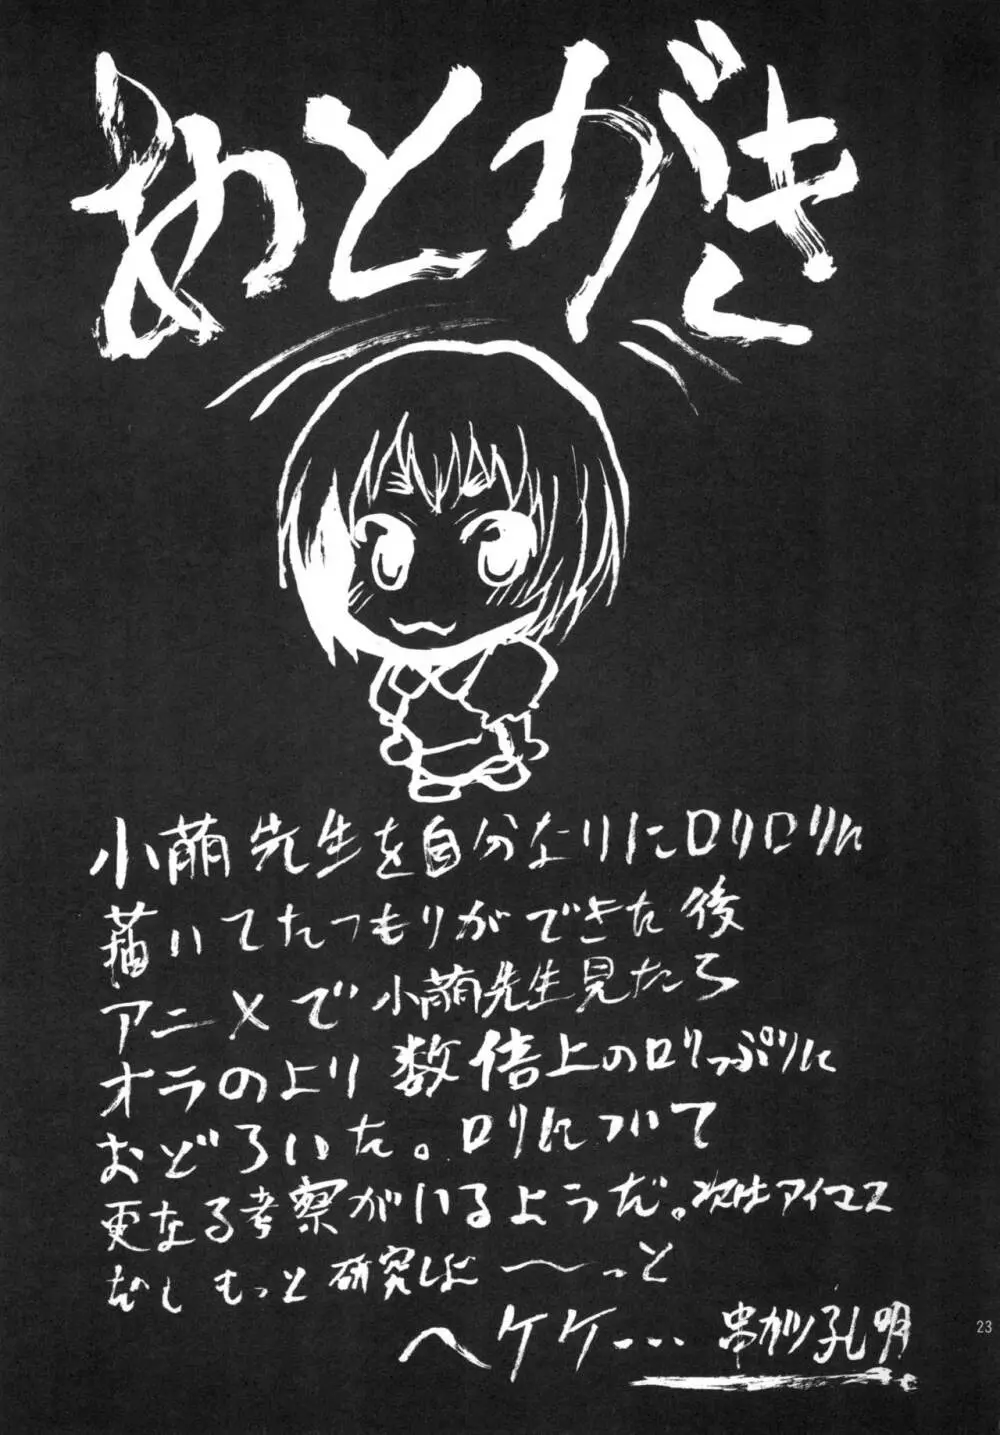 あとがき
小萌先生を自分なりにロリロリに
描いてたつもりができた後
アニメで小萌先生見たら
オラのより数倍上のロリっぷりに
おどろいた。ロリについて
更なる考察がいるようだ。次はアイマス
だし もっと研究しよ〜っと
へケケ… 串カツ孔明
23